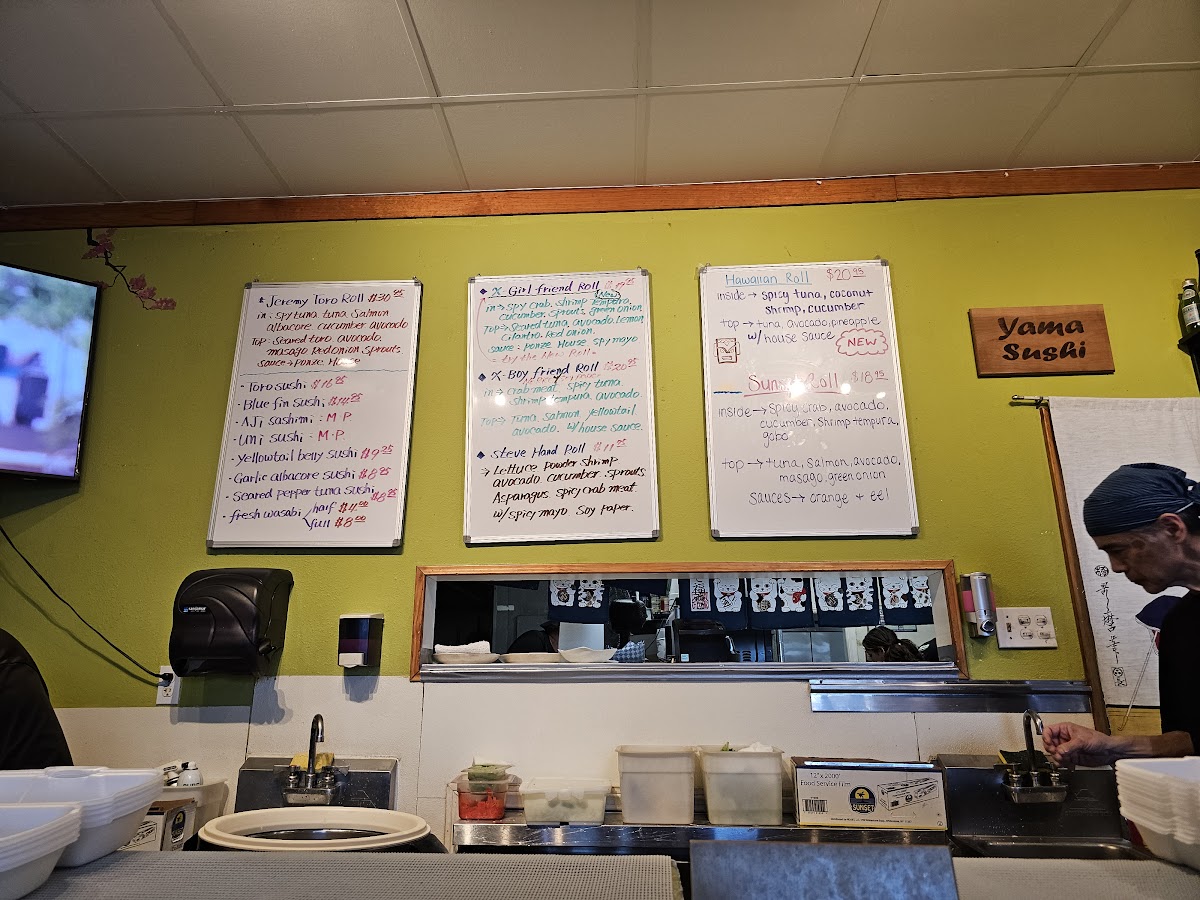 Jeremy Toro Roll $30.95
in: spy tuna. tuna. Salmon
albacore cucumber avocado
Top: Seared toro. avocado.
masago. Red onion. sprouts
Sauce → Ponze House
- Toro sushi $16.95
- Blue fin sushi $14.95
- AJi sashimi : M.P.
- Uni sushi - M.P.
- yellowtail belly sushi $9.25
- Garlic albacore sushi $8.95
- Seared pepper tuna sushi $8.95
- fresh wasabi half $4.00
full $8.00
X-Girl friend Roll
in → Spy crab. shrimp tempura.
cucumber. sprouts. green onion
Top → Seared tuna. avocado. Lemon
Cilantro. Red onion.
Sauce : Ponze House Spy mayo
X-Boy friend Roll $20.95
in → Crab meat. spicy tuna
Shrimp tempura. avocado
Top → Tuna. Salmon. yellowtail
avocado. w/ house sauce.
Steve Hand Roll $11.95
→ Lettuce powder shrimp
avocado. cucumber. sprouts
Asparagus. spicy crab meat.
w/ spicy mayo Soy paper.
Hawaiian Roll $20.95
inside → spicy tuna, coconut
shrimp, cucumber
top → tuna, avocado, pineapple
w/ house sauce NEW
Roll $18.95
inside → Spicy crab, avocado,
cucumber, Shrimp tempura,
gobo
top → tuna, Salmon, avocado,
masago, green onion
Sauces → orange + eel
Yama
Sushi
12" x 2000'
Food Service Film
SUNSET